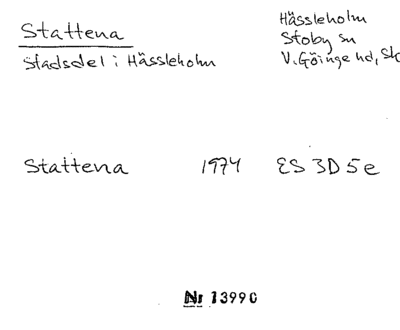 Stattena
Stadsdel i Hässleholm
Hässleholm
Stoby sn
V. Göinge hd, Sk
Stattena 1974 ES 3D5e
Nr 13990